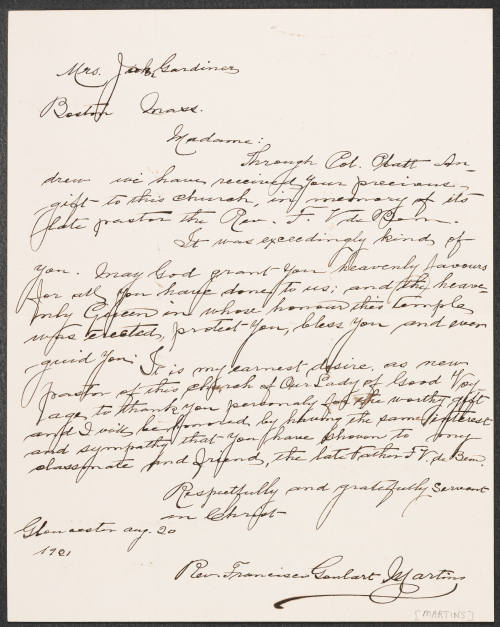 Mrs. Jack Gardiner
Boston Mass.
Madame:
Through Col. Platt An-
drew we have received your precious
gift to this church, in memory of its
late pastor the Rev. F. V. de Bem.
It was exceedingly kind of
you. May God grant you heavenly favours
for all you have done to us; and the heave-
nly Queen in whose honour this temple
was erected, protect you, bless you and even
guid you. It is my earnest desire, as new
pastor of this church of Our Lady of Good Voy-
age, to thank you personaly for the worthy gift
and I will be honored by having the same interest
and sympathy that you have shown to my
classmate and friend, the late Father F. V. de Bem.
Respetfully and gratefully servant
in Christ
Gloucester aug. 20
1921
Rev. Francisco Goulart Martins
[MARTINS]